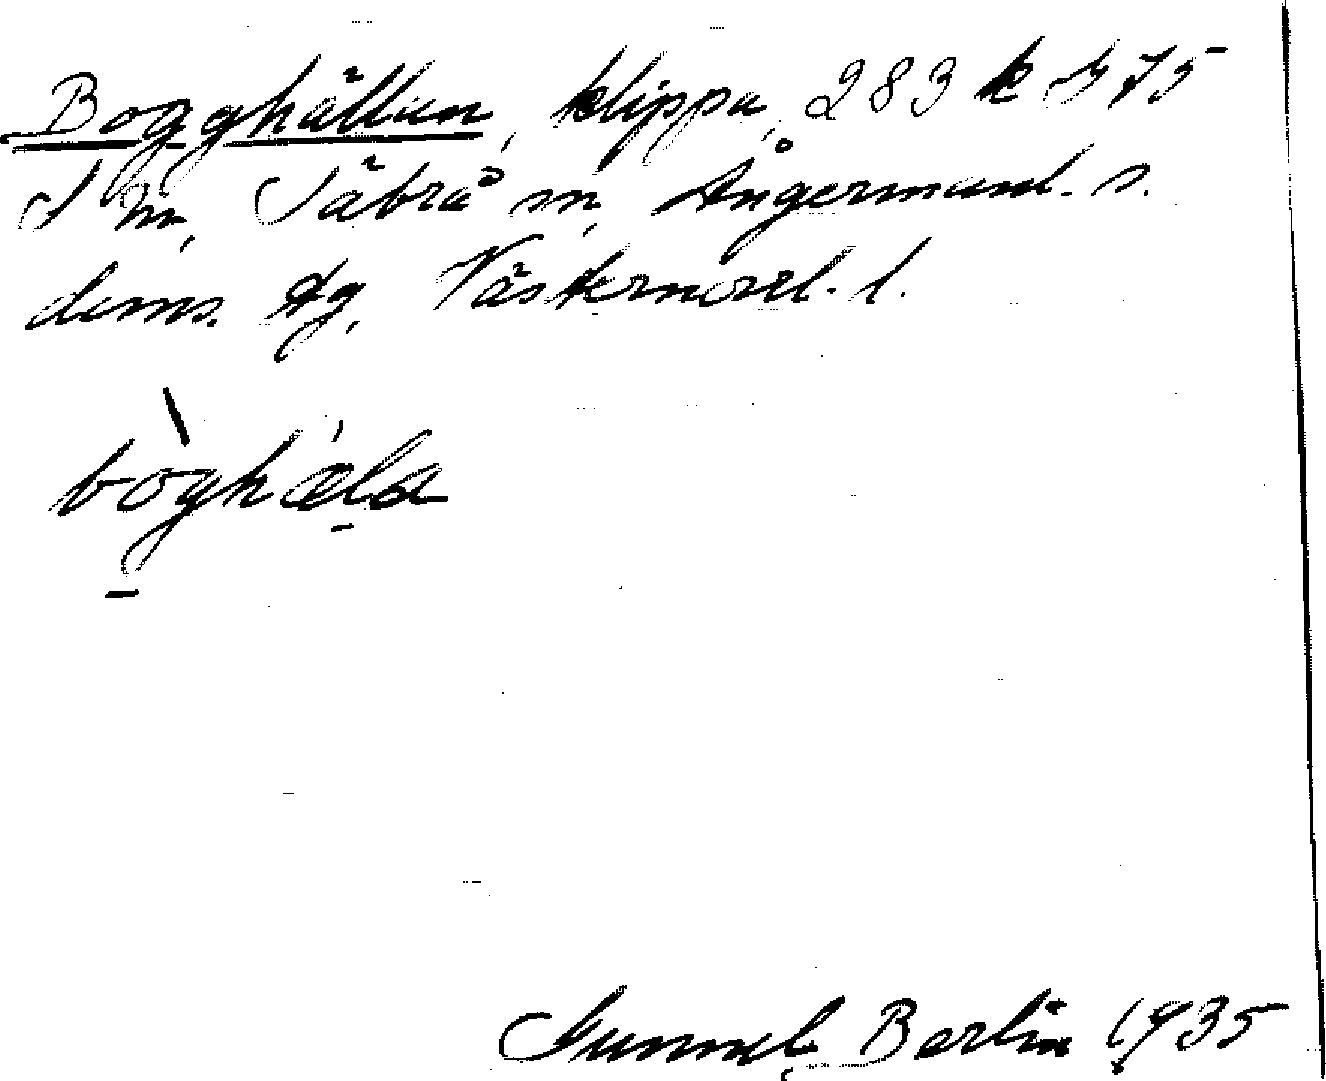 Bogghällan, klippa, 283 k S 75
S m, Säbrå sn, Ångermanl. s.
doms. tg, Västernorrl. l.
bòghǽla
Gunnel Berlin 1935